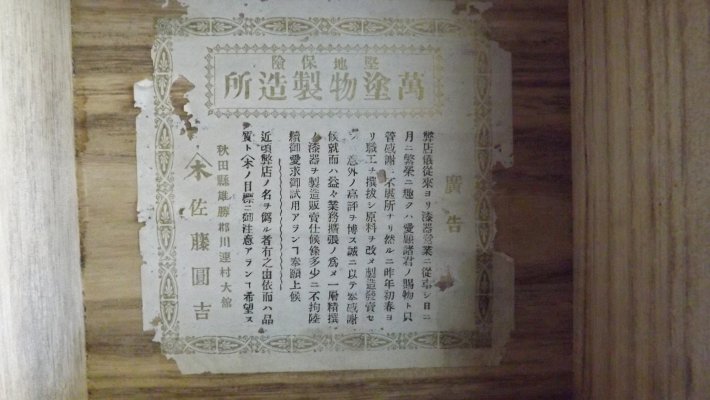 堅地保險
萬塗物製造所
廣告
弊店儀從來ヨリ漆器營業ニ從事シ日ニ
月ニ繁榮ニ趣クハ愛顧諸君ノ賜物ト只
管感謝ニ不堪所ナリ然ルニ昨年初春ヨ
リ職工ヲ撰拔シ原料ヲ改メ製造發賣セ
シニ意外ノ高評ヲ博ス誠ニ以テ奉感謝
候就而ハ益々業務擴張ノ爲メ一層精撰
ノ漆器ヲ製造販賣仕候條多少ニ不拘陸
續御愛求御試用アランヿ奉願上候
近頃弊店ノ名ヲ僞ル者有之由依而ハ品
質ト 木ノ目標ニ御注意アランヿ希望ス
秋田縣雄勝郡川連村大舘
木 佐藤圓吉